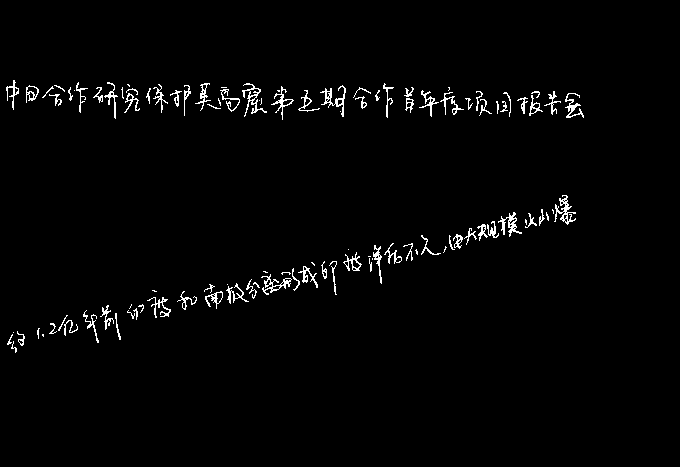 中日合作研究保护莫高窟第五期合作首年度项目报告会
约1.2亿年前印度和南极分离形成印度洋后不久,由大规模火山爆